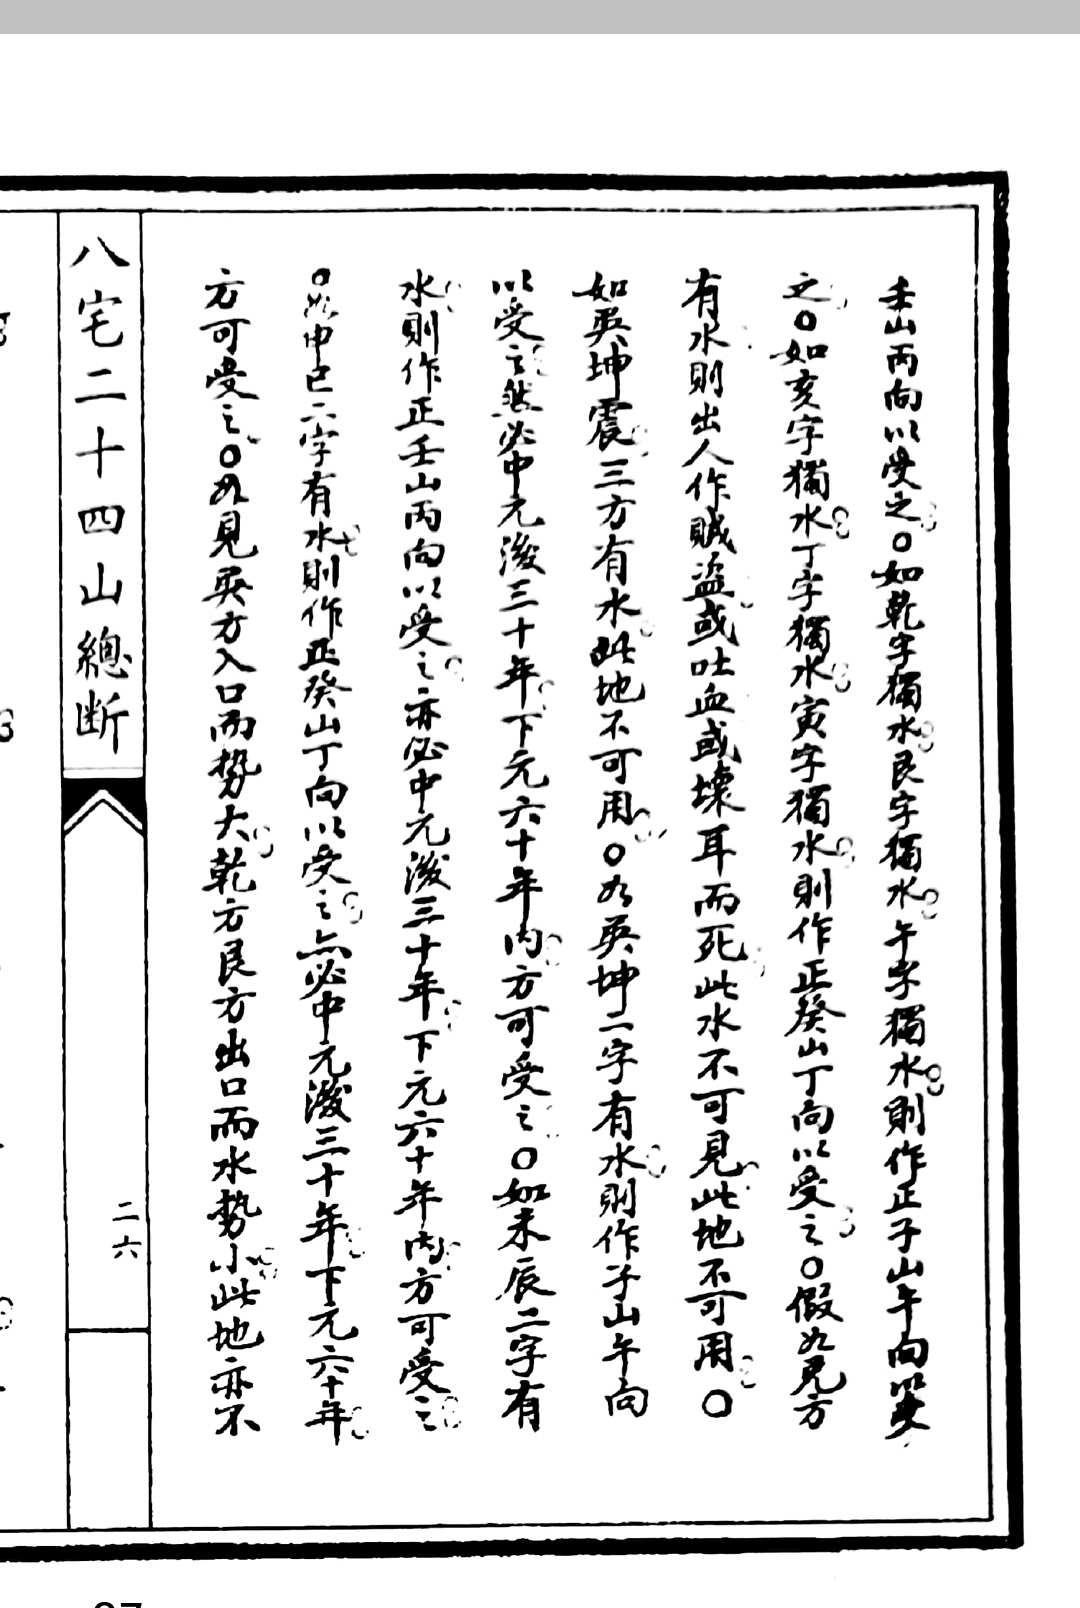 壬山丙向以受之○如乾字獨水艮字獨水午字獨水則作正子山午向以受
之○如亥字獨水丁字獨水寅字獨水則作正癸山丁向以受之○假如見方
有水則出人作賊盜或吐血或壞耳而死此水不可見此地不可用○
如巽坤震三方有水此地不可用○如巽坤二字有水則作子山午向
以受之然必中元後三十年下元六十年內方可受之○如未辰二字有
水則作正壬山丙向以受之亦必中元後三十年下元六十年內方可受之
○如申巳二字有水則作正癸山丁向以受之必中元後三十年下元六十年
方可受之○如見巽方入口而势大乾方艮方出口而水势小此地亦不
八宅二十四山總断
二六